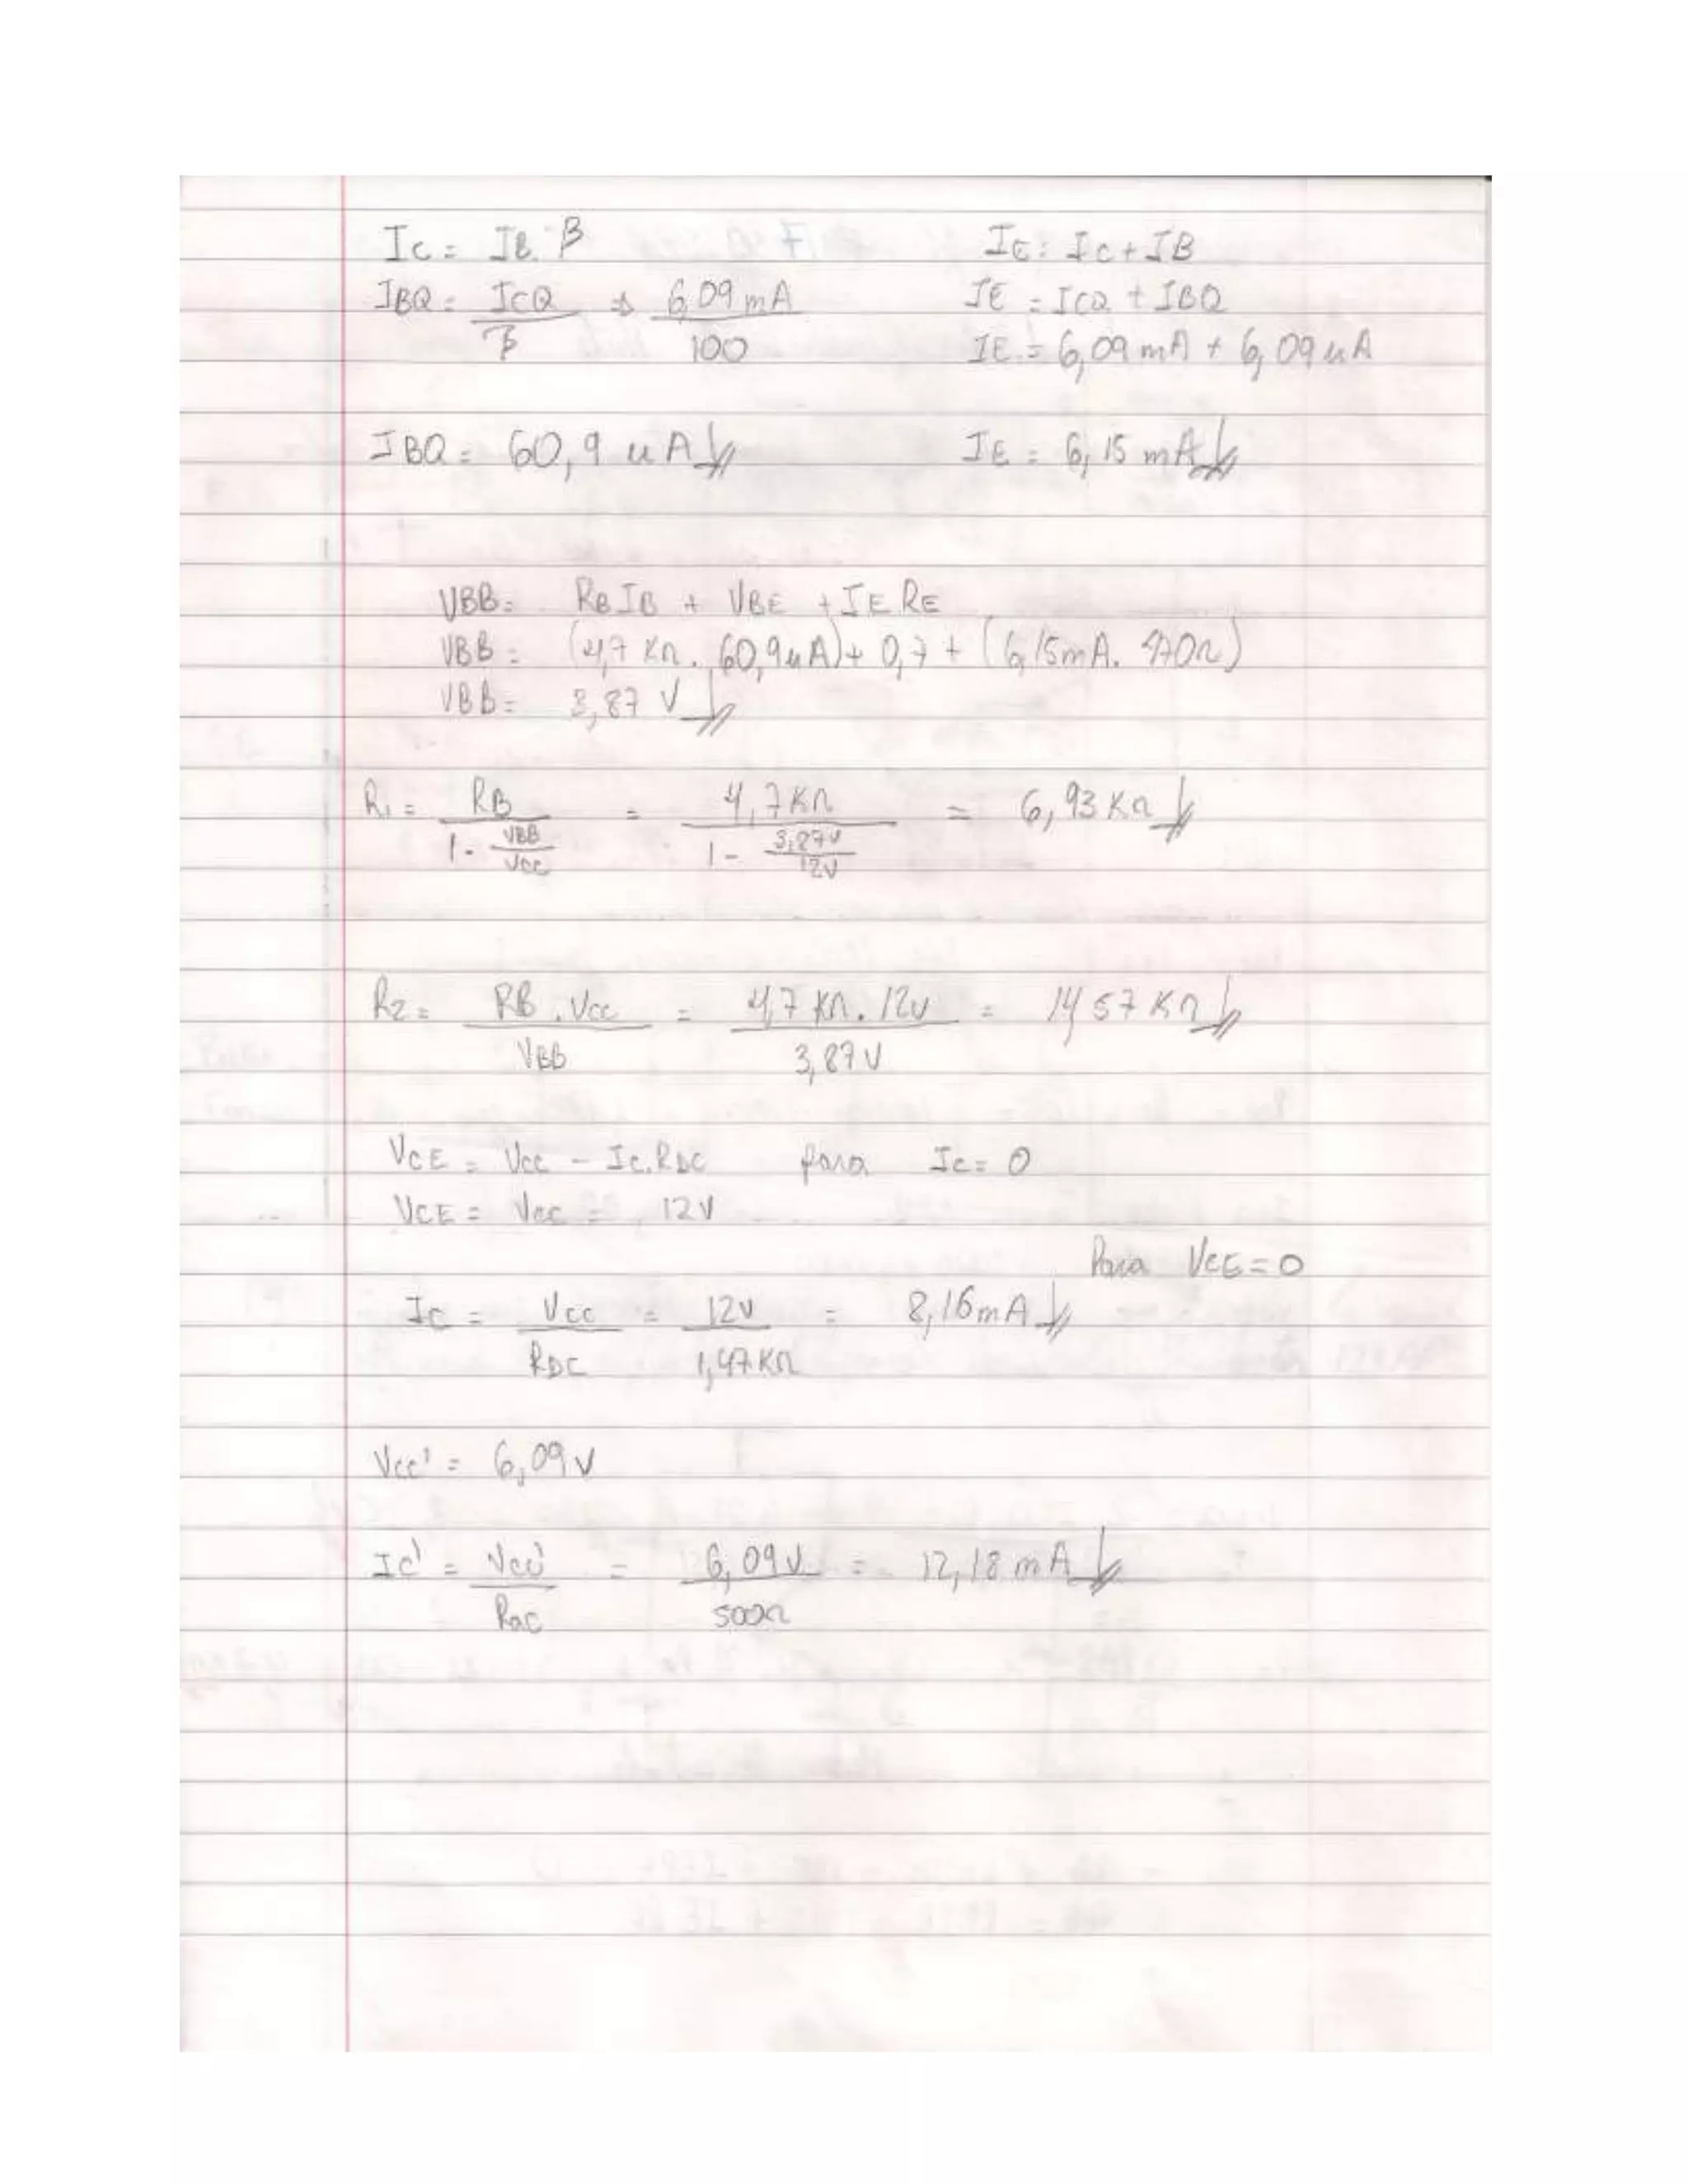 Ic = IB. β
IE: Ic + IB
IBQ = ICQ / β ⇒ 6,09 mA / 100
IE = ICQ + IBQ
IE = 6,09 mA + 6,09 uA
IBQ = 60,9 uA
IE = 6,15 mA
VBB = RB IB + VBE + IE RE
VBB = (4,7 KΩ . 60,9uA) + 0,7 + (6,15mA. 470Ω)
VBB = 3,87 V
R1 = RB / (1 - VBB/VCC) = 4,7KΩ / (1 - 3,87V/12V) = 6,93 KΩ
R2 = RB . Vcc / VBB = 4,7 KΩ. 12V / 3,87V = 14,57 KΩ
VCE = Vcc - Ic.RDC para Ic = 0
VCE = Vcc = 12V
Para VCE = 0
Ic = Vcc / RDC = 12V / 1,47KΩ = 8,16mA
Vcc' = 6,09 V
Ic' = Vcc' / Rac = 6,09V / 500Ω = 12,18 mA